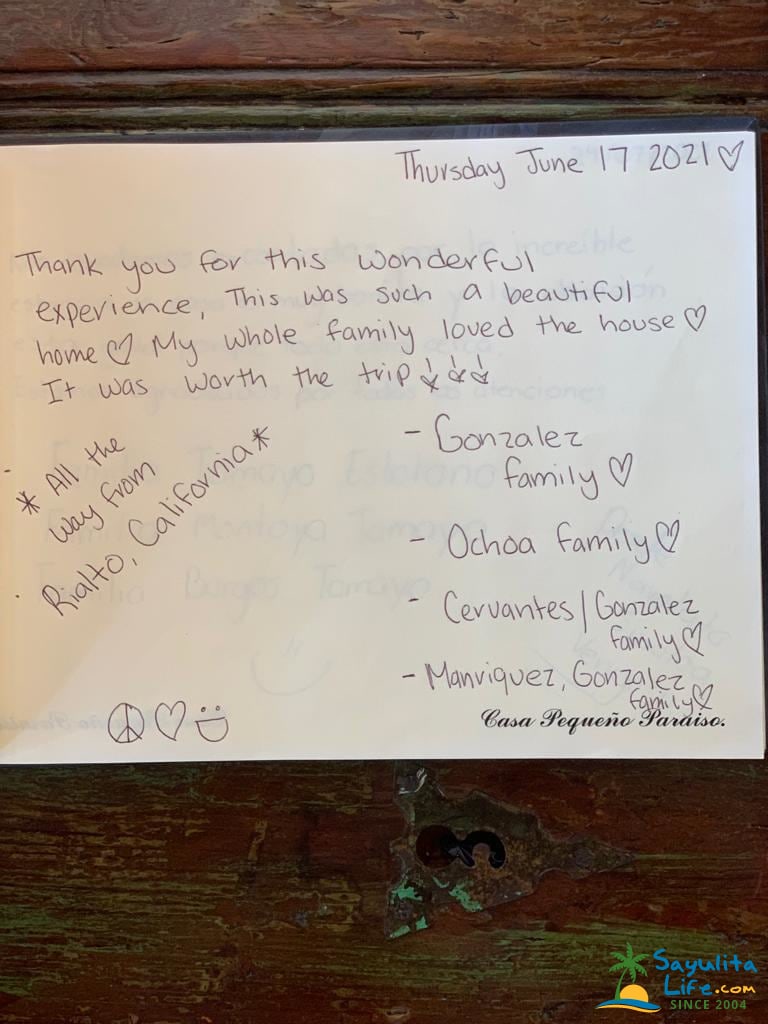 Thursday June 17 2021♡
Thank you for this wonderful
experience, This was such a beautiful
home ♡ My whole family loved the house ♡
It was worth the trip!!!
* All the
way from
Rialto, California *
- Gonzalez
family ♡
- Ochoa family ♡
- Cervantes/Gonzalez
family ♡
- Manriquez, Gonzalez
family ♡
Casa Pequeño Paraiso.
Sayulita
Life.com
SINCE 2004